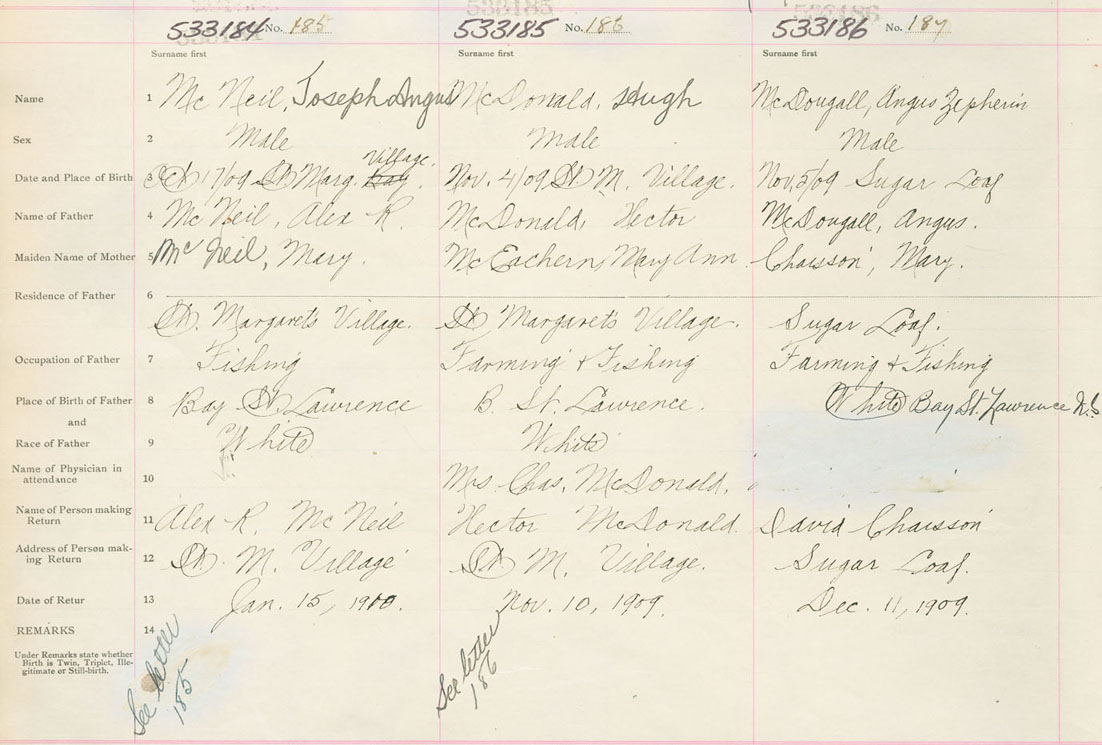 533184 No. 185 533185 No. 186 533186 No. 187
Surname first Surname first Surname first
Name 1 Mc Neil, Joseph Angus McDonald, Hugh McDougall, Angus Zepherin
Sex 2 Male Male Male
Village.
Date and Place of Birth 3 Oct 17/09 St Marg. Bay. Nov. 4/09 St M. Village. Nov, 5/09 Sugar Loaf
Name of Father 4 Mc Neil, Alex R. McDonald, Hector McDougall, Angus.
Maiden Name of Mother 5 Mc Neil, Mary. McEachern, Mary Ann. Chaisson, Mary.
Residence of Father 6
St. Margaret's Village. St Margaret's Village. Sugar Loaf.
Occupation of Father 7 Fishing Farming & Fishing Farming & Fishing
Place of Birth of Father 8 Bay St. Lawrence B. St. Lawrence. White Bay St. Lawrence N.S
and
Race of Father 9 White White
Name of Physician in
attendance 10 Mrs. Chas. McDonald.
Name of Person making
Return 11 Alex R. Mc Neil Hector McDonald. David Chaisson
Address of Person mak-
ing Return 12 St. M. Village St M. Village. Sugar Loaf.
Date of Retur 13 Jan. 15, 1910. Nov. 10, 1909. Dec. 11, 1909.
REMARKS 14
Under Remarks state whether
Birth is Twin, Triplet, Ille-
gitimate or Still-birth.
See letter
185
See letter
186